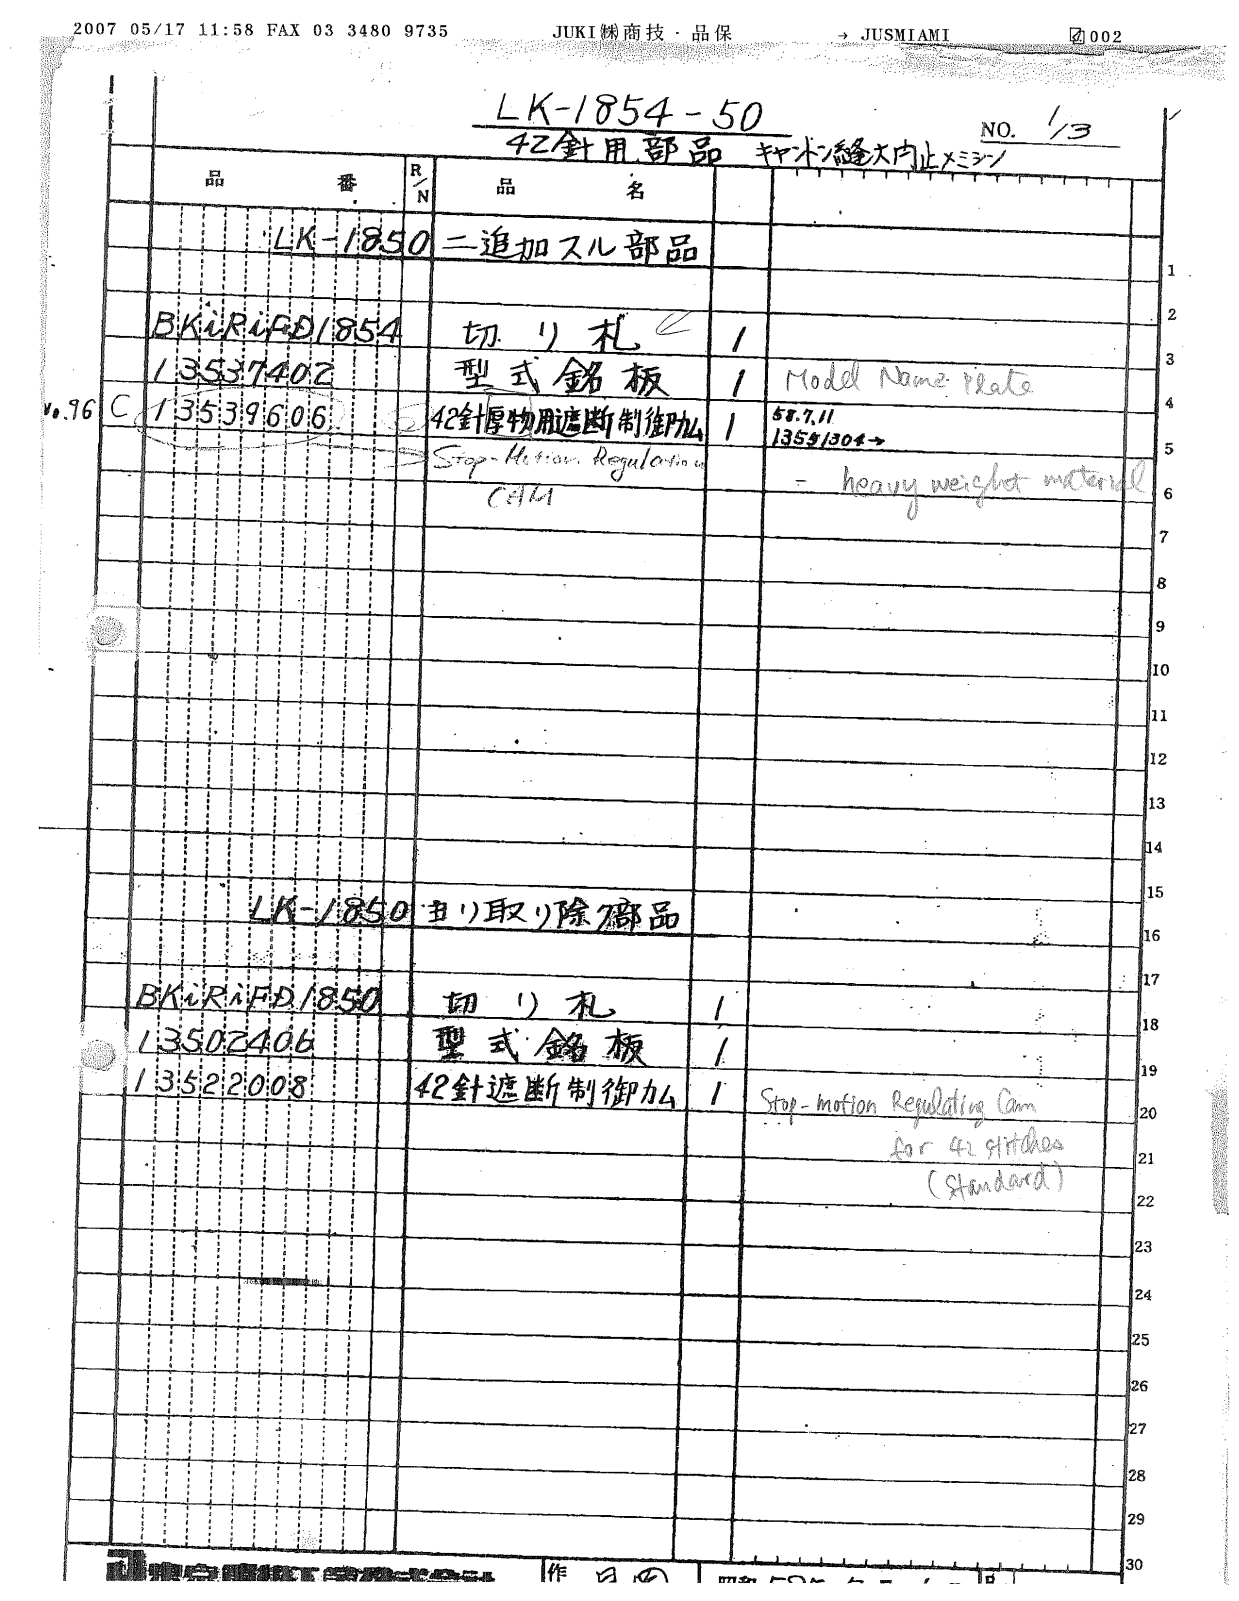 2007 05/17 11:58 FAX 03 3480 9735 JUKI㈱商技・品保 → JUSMIAMI 002
LK-1854-50
NO. 1/3
42針用部品
品番 R/N 品名
LK-1850 ニ追加スル部品
1
2
BKiRiFD1854 切り札 1
3
13537402 型式銘板 1 Model Name Plate
4
No.96 C 13539606 42針厚物用遮断制御カム 1 58.7.11
13551304→
5
Stop-Motion Regulation
CAM
- heavy weight material
6
7
8
9
10
11
12
13
14
15
LK-1850 ヨリ取り除ク部品
16
17
BKiRiFD1850 切り札 1
18
13502406 型式銘板 1
19
13522008 42針遮断制御カム 1 Stop-motion Regulating Cam
20
for 42 stitches
21
(standard)
22
23
24
25
26
27
28
29
30